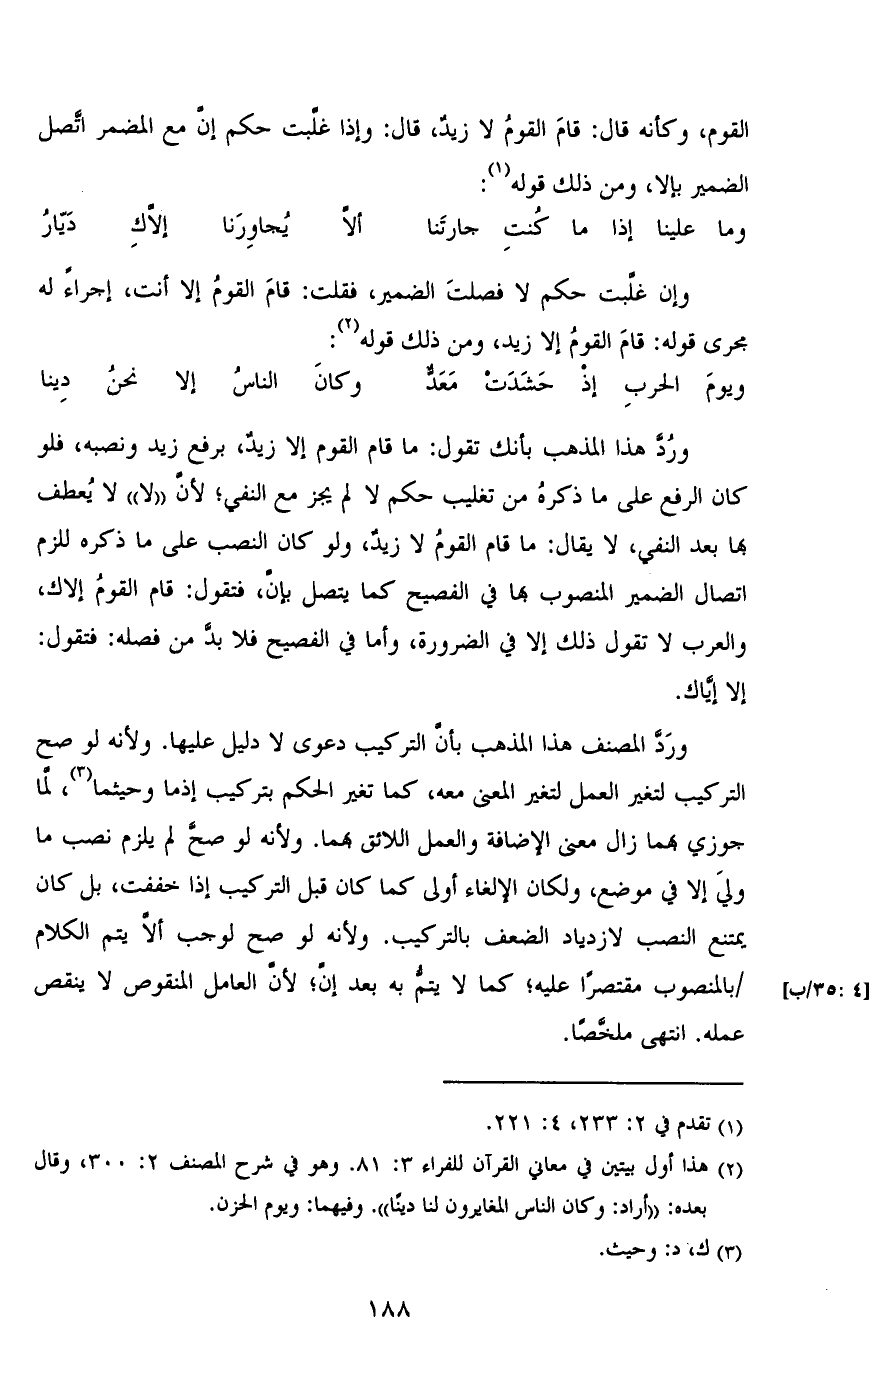 القوم، وكأنه قال: قامَ القومُ لا زيدٌ، قال: وإذا غلَّبت حكم إنَّ مع المضمر اتَّصل
الضمير بإلا، ومن ذلك قوله(١):
وما علينا إذا ما كُنتِ جارتَنا ألاَّ يُجاوِرَنا إلاَّكِ دَيّارُ
وإن غلَّبت حكم لا فصلتَ الضمير، فقلت: قامَ القومُ إلا أنت، إجراءً له
مجرى قوله: قامَ القومُ إلا زيد، ومن ذلك قوله(٢):
ويومَ الحربِ إذْ حَشَدَتْ مَعَدٌّ وكانَ الناسُ إلا نحنُ دِينا
ورُدَّ هذا المذهب بأنك تقول: ما قام القوم إلا زيدٌ، برفع زيد ونصبه، فلو
كان الرفع على ما ذكرهُ من تغليب حكم لا لم يجز مع النفي؛ لأنَّ «لا» لا يُعطف
بها بعد النفي، لا يقال: ما قام القومُ لا زيدٌ، ولو كان النصب على ما ذكره للزم
اتصال الضمير المنصوب بها في الفصيح كما يتصل بإنَّ، فتقول: قام القومُ إلاك،
والعرب لا تقول ذلك إلا في الضرورة، وأما في الفصيح فلا بدَّ من فصله: فتقول:
إلا إيَّاك.
ورَدَّ المصنف هذا المذهب بأنَّ التركيب دعوى لا دليل عليها. ولأنه لو صح
التركيب لتغير العمل لتغير المعنى معه، كما تغير الحكم بتركيب إذما وحيثما(٣)، لمَّا
جوزي بهما زال معنى الإضافة والعمل اللائق بهما. ولأنه لو صحَّ لم يلزم نصب ما
وليَ إلا في موضع، ولكان الإلغاء أولى كما كان قبل التركيب إذا خففت، بل كان
يمتنع النصب لازدياد الضعف بالتركيب. ولأنه لو صح لوجب ألاَّ يتم الكلام
/بالمنصوب مقتصرًا عليه؛ كما لا يتمُّ به بعد إنَّ؛ لأنَّ العامل المنقوص لا ينقص [٤: ٣٥/ب]
عمله. انتهى ملخَّصًا.
(١) تقدم في ٢: ٢٣٣، ٤: ٢٢١.
(٢) هذا أول بيتين في معاني القرآن للفراء ٣: ٨١. وهو في شرح المصنف ٢: ٣٠٠، وقال
بعده: «أراد: وكان الناس المغايرون لنا دينًا». وفيهما: ويوم الحزن.
(٣) ك، د: وحيث.
١٨٨